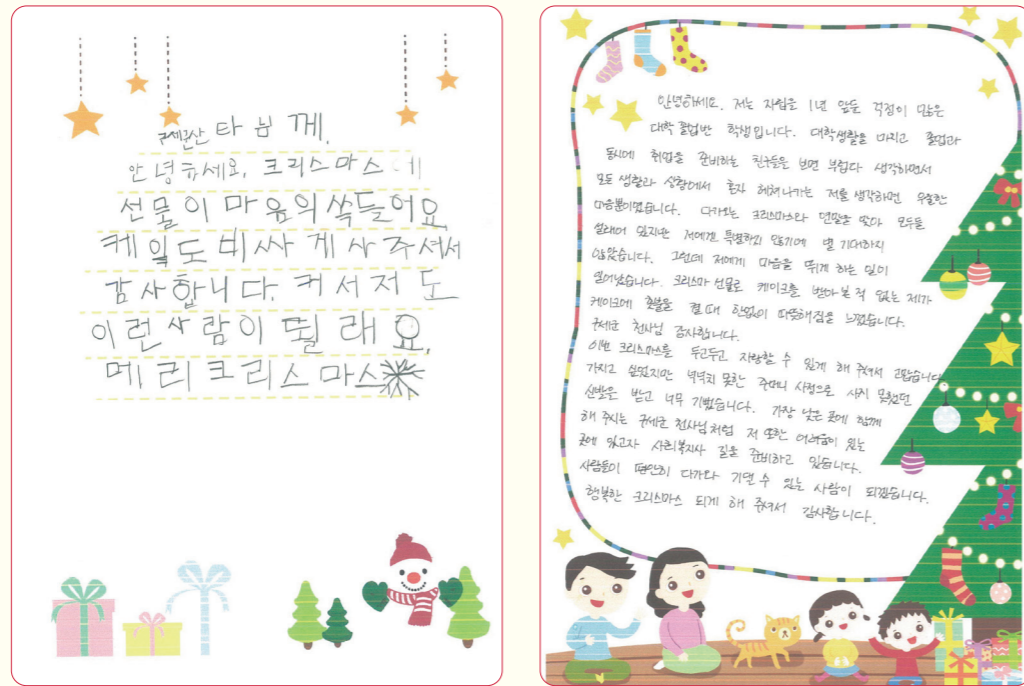 구세군산타님께.
안녕하세요. 크리스마스에
선물이 마음의 쏙들어요
케잌도 비싸게 사주셔서
감사합니다. 커서 저도
이런 사람이 될래요.
메리크리스마스
안녕하세요. 저는 자립을 1년 앞둔 걱정이 많은
대학 졸업반 학생입니다. 대학생활을 마치고 졸업과
동시에 취업을 준비하는 친구들을 보면 부럽다 생각하면서
모든 생활과 상황에서 혼자 헤쳐나가는 저를 생각하면 우울한
마음뿐이었습니다. 다가오는 크리스마스와 연말을 맞아 모두들
설레어 있지만 저에겐 특별하지 않기에 별 기대하지
않았습니다. 그런데 저에게 마음을 뛰게 하는 일이
일어났습니다. 크리스마스 선물로 케이크를 받아본 적 없는 제가
케이크에 촛불을 켤 때 한없이 따뜻해짐을 느꼈습니다.
구세군 천사님 감사합니다.
이번 크리스마스를 두고두고 자랑할 수 있게 해 주셔서 고맙습니다
가지고 싶었지만 넉넉치 못한 주머니 사정으로 사지 못했던
신발을 받고 너무 기뻤습니다. 가장 낮은 곳에 함께
해 주시는 구세군 천사님처럼 저 또한 어려움이 있는
곳에 있고자 사회복지사 길을 준비하고 있습니다.
사람들이 편안히 다가와 기댈 수 있는 사람이 되겠습니다.
행복한 크리스마스 되게 해 주셔서 감사합니다.